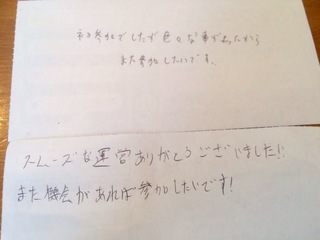 初参加でしたが色々な事があったから
また参加したいです。
スムーズな運営ありがとうございました!!
また機会があれば参加したいです!